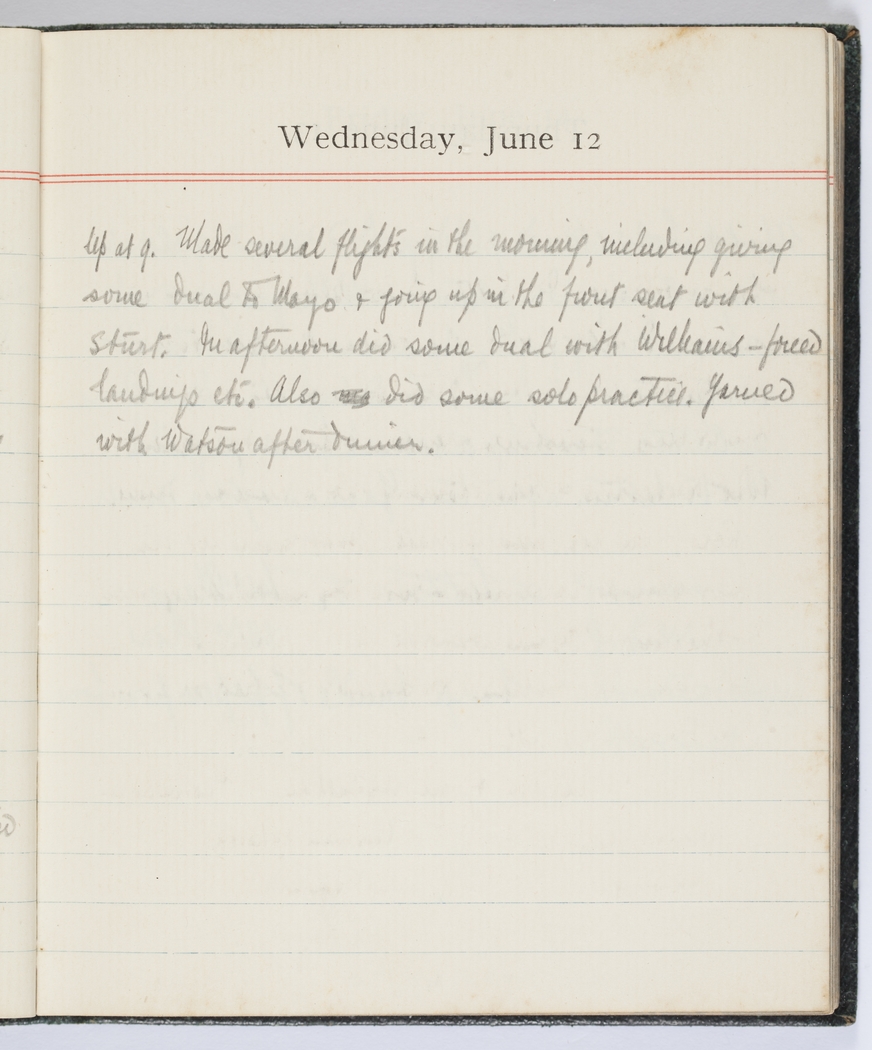 Wednesday, June 12
Up at 9. Made several flights in the morning, including giving
some dual to Mayo & going up in the front seat with
Sturt. In afternoon did some dual with Williams – forced
landings etc. Also did some solo practice. Yarned
with Watson after dinner.